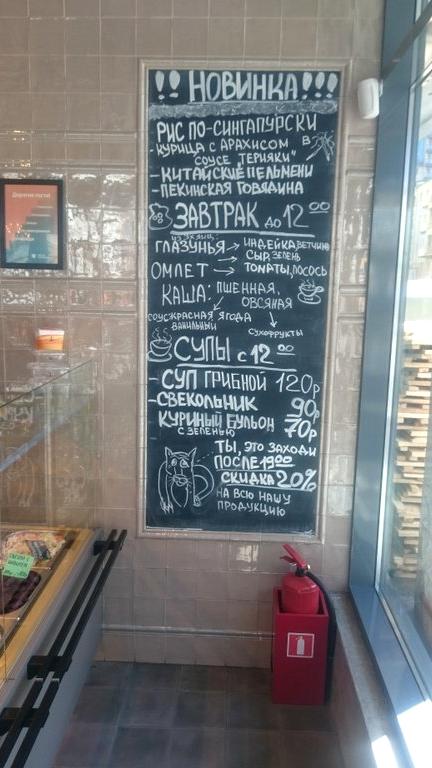 !! НОВИНКА!!!
РИС ПО-СИНГАПУРСКИ
-КУРИЦА С АРАХИСОМ В
СОУСЕ "ТЕРИЯКИ"
-КИТАЙСКИЕ ПЕЛЬМЕНИ
-ПЕКИНСКАЯ ГОВЯДИНА
ЗАВТРАК ДО 12 00
ГЛАЗУНЬЯ → ИНДЕЙКА, ВЕТЧИНА
СЫР, ЗЕЛЕНЬ
ОМЛЕТ → ТОМАТЫ, ЛОСОСЬ
КАША: ПШЕННАЯ,
ОВСЯНАЯ
СОУС КРАСНАЯ ЯГОДА
ВАНИЛЬНЫЙ
СУХОФРУКТЫ
СУПЫ С 12 00
-СУП ГРИБНОЙ 120р
-СВЕКОЛЬНИК 90р
КУРИНЫЙ БУЛЬОН 70р
С ЗЕЛЕНЬЮ
ТЫ, ЭТО ЗАХОДИ
ПОСЛЕ 19 00
СКИДКА 20%
НА ВСЮ НАШУ
ПРОДУКЦИЮ